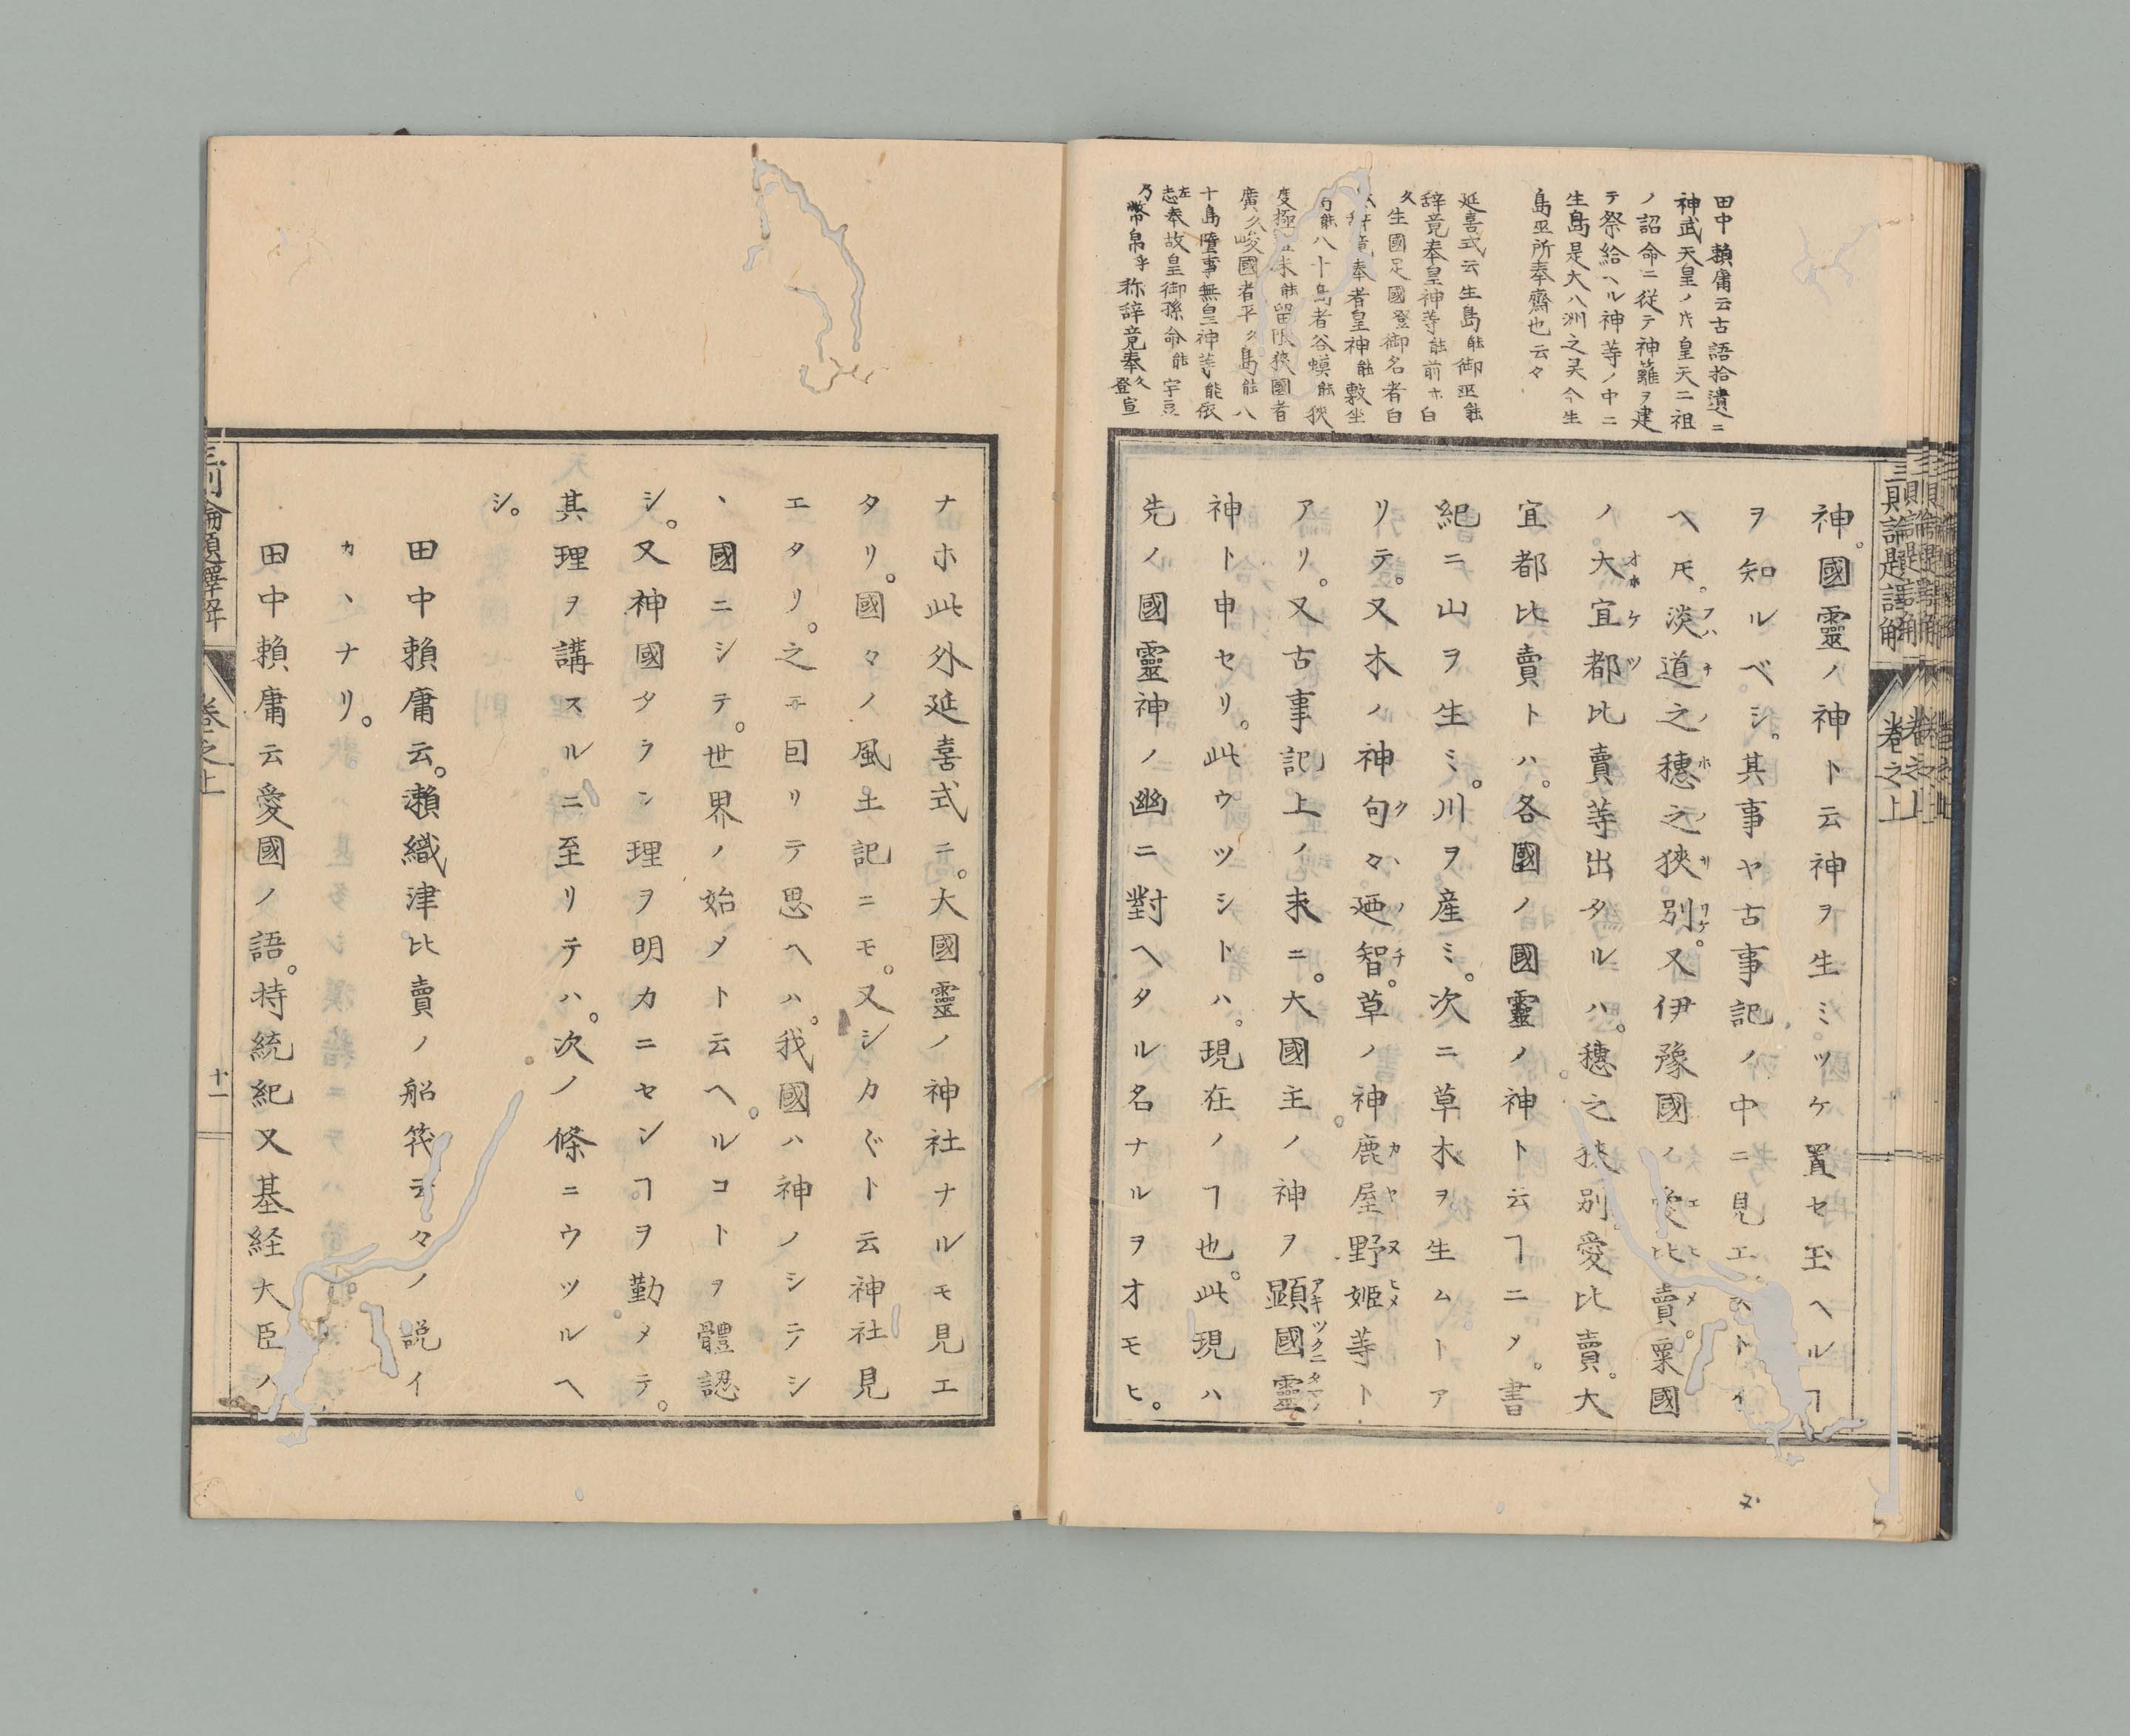 田中頼庸云古語拾遺ニ
神武天皇ノ片皇天二祖
ノ詔命ニ従テ神籬ヲ建
テ祭給ヘル神等ノ中ニ
生島是大八洲之灵今生
島巫所奉齋也云々
延喜式云生島能御巫能
辞竟奉皇神等能前ホ白
久生國足國登御名者白
辞竟奉者皇神能敷坐
島能八十島者谷蟆能狹
度極 留限狹國者
廣久峻國者平久島能八
十島墮事無皇神等能依
左志奉故皇御孫命能宇豆
乃幣帛乎称辞竟奉久登宣
神。國靈ノ神ト云神ヲ生ミツケ置セ玉ヘルヿ
ヲ知ルベシ。其事ヤ古事記ノ中ニ見エ
ヘ𪜈。淡道之穗之狹別。又伊豫國ノ愛比賣。粟國
ノ大宜都比賣等出タルハ。穗之狹別愛比賣。大
宜都比賣トハ。各國ノ國靈ノ神ト云ヿニメ。書
紀ニ山ヲ生ミ。川ヲ産ミ。次ニ草木ヲ生ムトア
リテ。又木ノ神句々廼智。草ノ神鹿屋野姫等ト
アリ。又古事記上ノ末ニ。大國主ノ神ヲ顯國靈
神ト申セリ。此ウツシトハ。現在ノヿ也。此現ハ
先ノ國靈神ノ幽ニ對ヘタル名ナルヲオモヒ。
三則論題譯解
卷之上
ナホ此外延喜式ニ。大國靈ノ神社ナルモ見エ
タリ。國々ノ風土記ニモ。又シカ〲ト云神社見
エタリ。之ニ因リテ思ヘハ。我國ハ神ノシラシ
丶國ニシテ。世界ノ始メト云ヘ。ルコトヲ體認
シ。又神國タラン理ヲ明カニセンヿヲ勤メテ。
其理ヲ講スルニ至リテハ。次ノ條ニウツルヘ
シ。
田中頼庸云。瀬織津比賣ノ船筏云々ノ説イ
カヽナリ。
田中頼庸云愛國ノ語。持統紀又基経大臣ノ
三則論題譯解
卷之上
十一